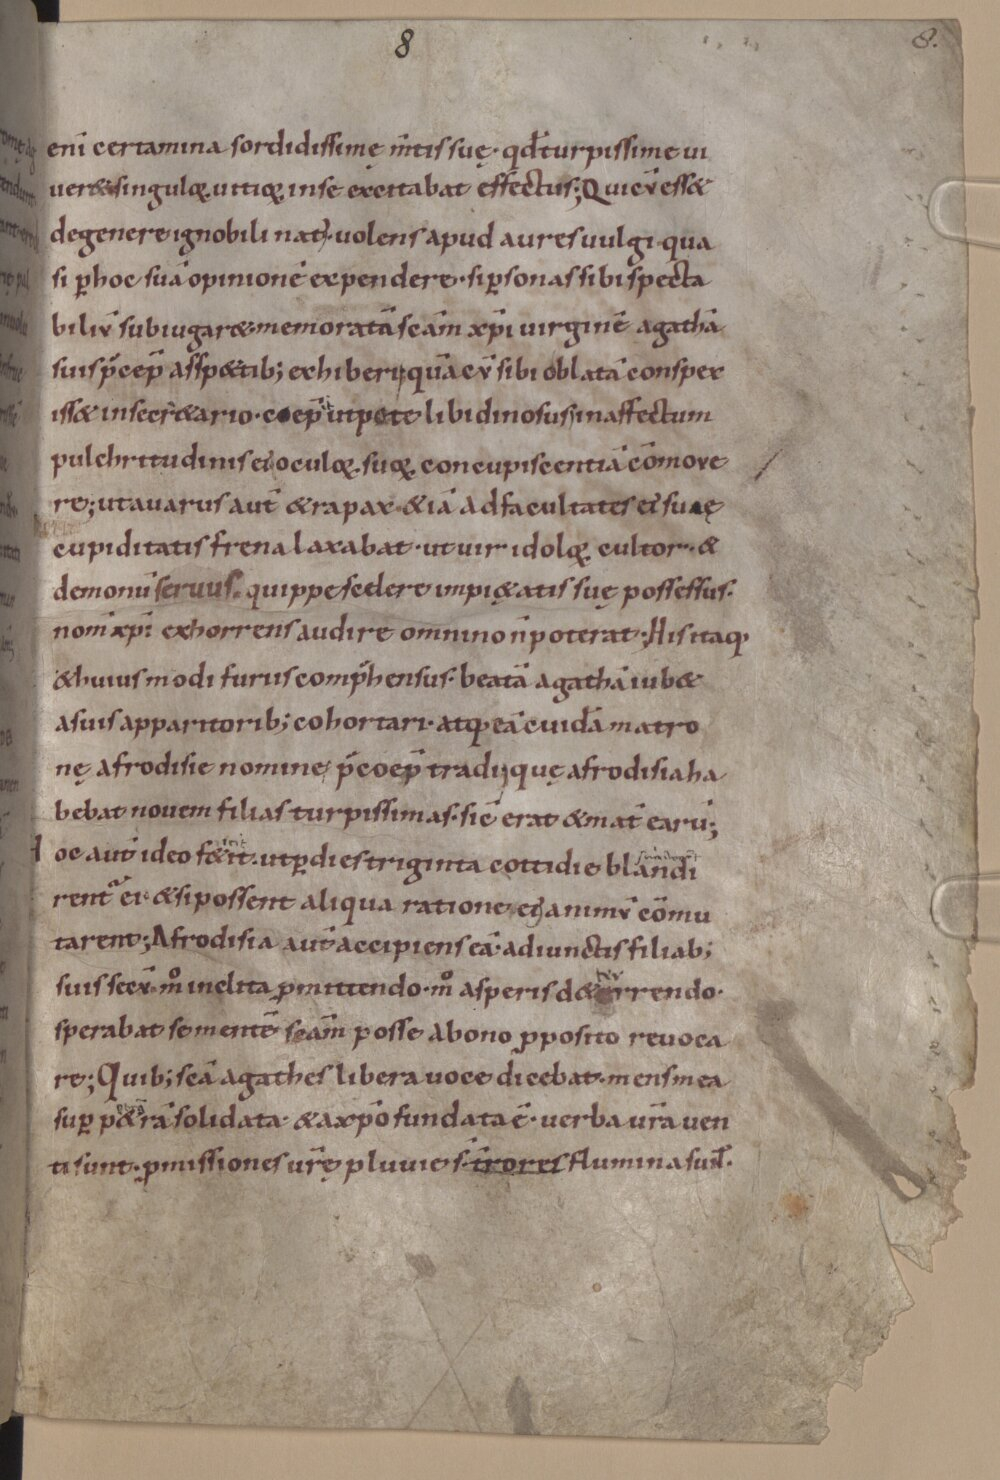 8 8.
eni̅ certamina sordidissimę m̅tis suę· qd̅ turpissime ui
uer& singuloꝝ uitioꝝ in se excitabat effectus; Qui cu̅ ess&
degenere ignobili nat᷒· uolens apud aures uulgi qua
si ꝑ hoc sua̅ opinione̅ expendere· si ꝑsonas sibi specta
biliu̅ subiugar& memorata̅ sca̅m xp̅i uirgine̅ agatha̅
suis p̅cep̅ assp&tib; exhiberi, qua̅ cu̅ sibi oblata̅ conspex
iss& in secr&ario· coep̅ utpote libidinosus in affectum
pulchritudinis ei᷒ oculoꝝ suoꝝ concupiscentia̅ co̅moue
re; ut auarus aut̅ & rapax &ia̅ ad facultates ei᷒ suę
cupiditatis frena laxabat· ut uir idoloꝝ cultor· &
demonu̅ seruus. quippe scelere impi&atis suę possessus·
nom̅ xp̅i exhorrens audire omnino n̅ poterat· His itaq᷒
& huius modi furiis comp̅hensus· beata̅ agatha̅ iub&
a suis apparitorib; cohortari· atq᷒ ea̅ cuida̅ matro
nę afrodisie nomine p̅coep̅ tradi, quę afrodisia ha
bebat nouem filias turpissimas· sic̅ erat & mat̅ earu̅;
Hoc aut̅ ideo fecit ut ꝑ dies triginta cottidie blandi
rent᷑ ei· & si possent aliqua ratione ei᷒ animu̅ co̅mu
tarent; Afrodisia aut̅ accipiens ea̅· adiunctis filiab;
suis secu̅· mo inclita ꝓmittendo· mo asperis d&errendo·
sperabat se mente̅ sca̅m posse a bono ꝓposito reuoca
re; Quib; sca̅ agathes libera uoce dicebat· mens mea
suꝑ p&ra̅ solidata· & a xp̅o fundata e̅· uerba ur̅a uen
ti sunt· ꝓmissiones ur̅ę pluuie s̅· t̅rores flumina sunt̅·